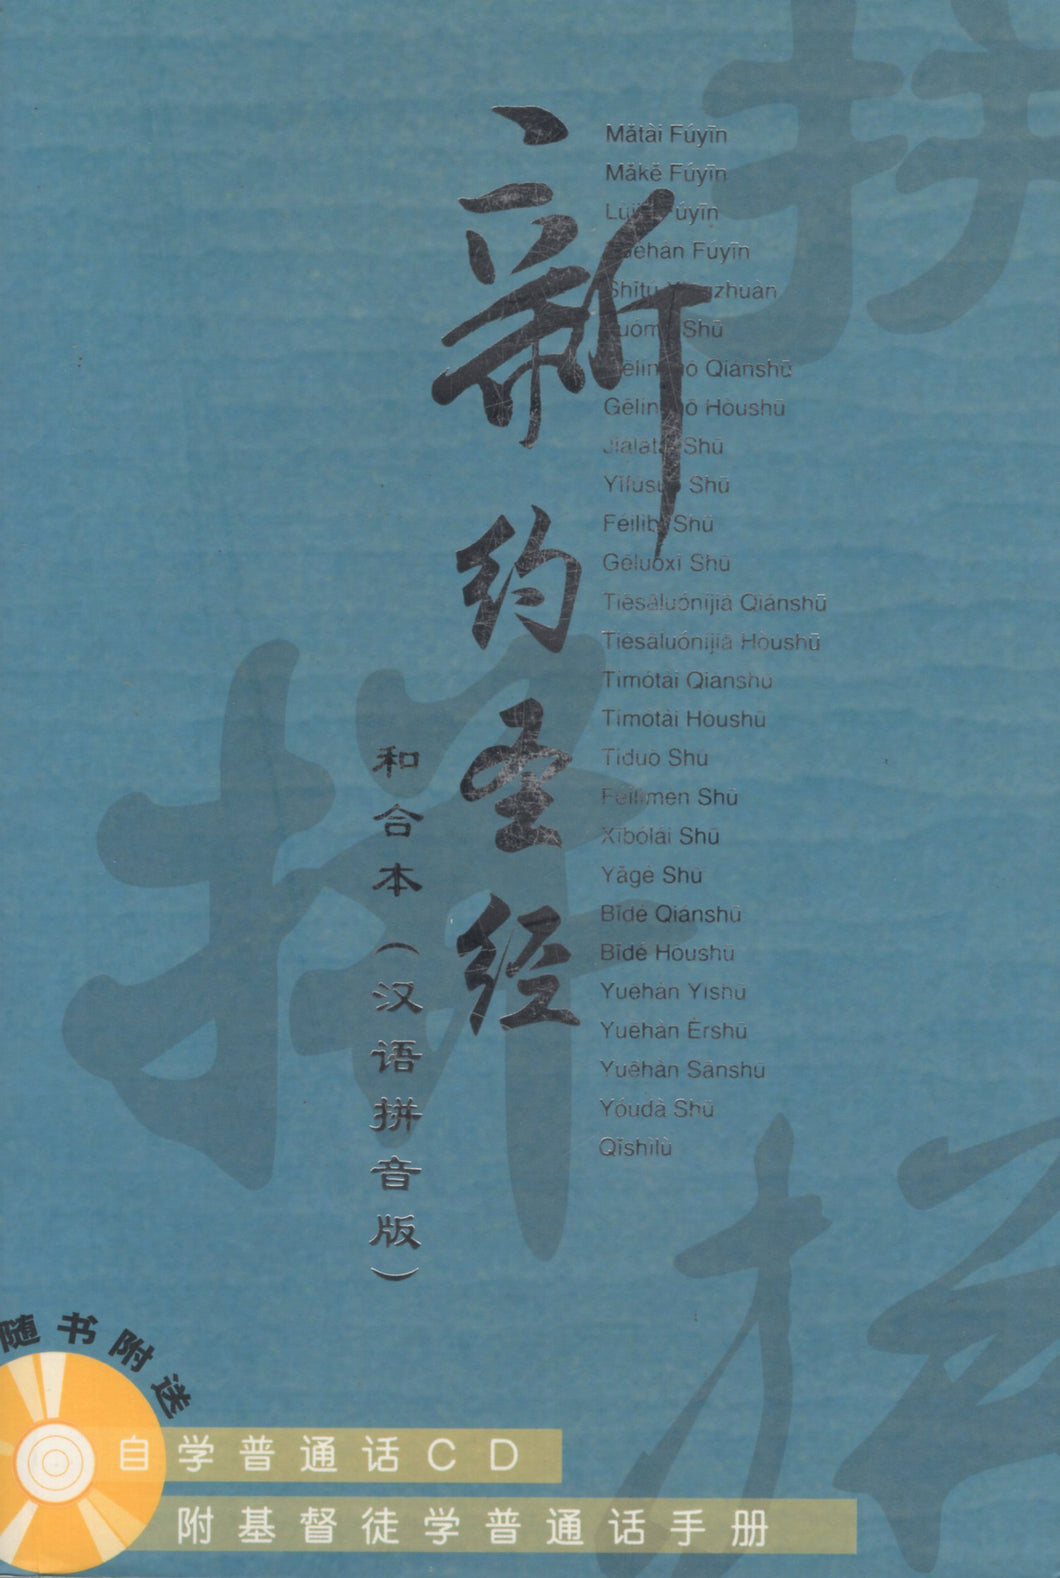 新约圣经
和合本（汉语拼音版）
Mǎtài Fúyīn
Mǎkě Fúyīn
Fúyīn
Fúyīn
Shǐtú
Shū
Qiánshū
Hòushū
Shū
Shū
Shū
Gēluóxī Shū
Tiēsāluóníjiā Qiánshū
Tiēsāluóníjiā Hòushū
Tímótài Qiánshū
Tímótài Hòushū
Tíduō Shū
Féilìmén Shū
Xībólái Shū
Yǎgè Shū
Bǐdé Qiánshū
Bǐdé Hòushū
Yuēhàn Yīshū
Yuēhàn Èrshū
Yuēhàn Sānshū
Yóudà Shū
Qǐshìlù
随书附送
自学普通话CD
附基督徒学普通话手册
拼
拼
拼